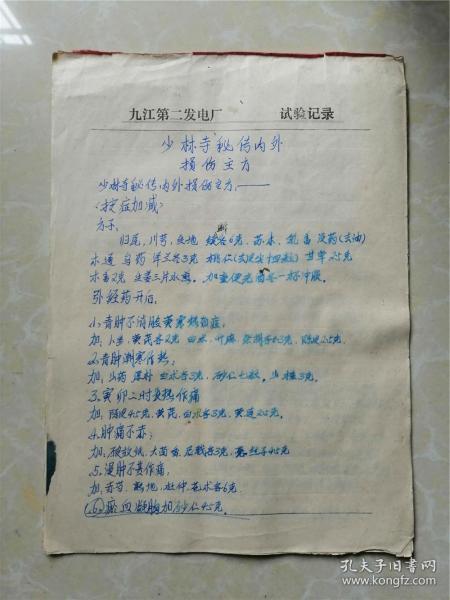 九江第二发电厂 试验记录
少林寺秘传内外
损伤主方
少林寺秘传内外损伤主方，——
〈按症加减〉
方子，
归尾，川芎，生地 续各6克，苏木、乳香 没药(去油)
木通 乌药 泽兰各3克 桃仁(去皮尖十四粒) 甘草25克
木香2克 生姜三片水煎。加童便老酒各一杯冲服。
引经药开后，
1、青肿不消 发寒热
加，各2克 白术，升麻 柴胡 25克
2、青肿潮寒作热；
加，山药 厚朴 白术各3克，砂仁七粒。3克
3、寅卯二时发热作痛
加，陈皮45克，黄芪，白术各3克，黄连25克
4、肿痛不赤；
加，破故纸，大茴香，巴戟各3克，菟丝子45克
5、漫肿不甚作痛，
加，赤芍，熟地，杜仲 苍术各6克
6、瘀血凝胸加砂仁45克。
孔夫子旧书网
www.kongfz.com